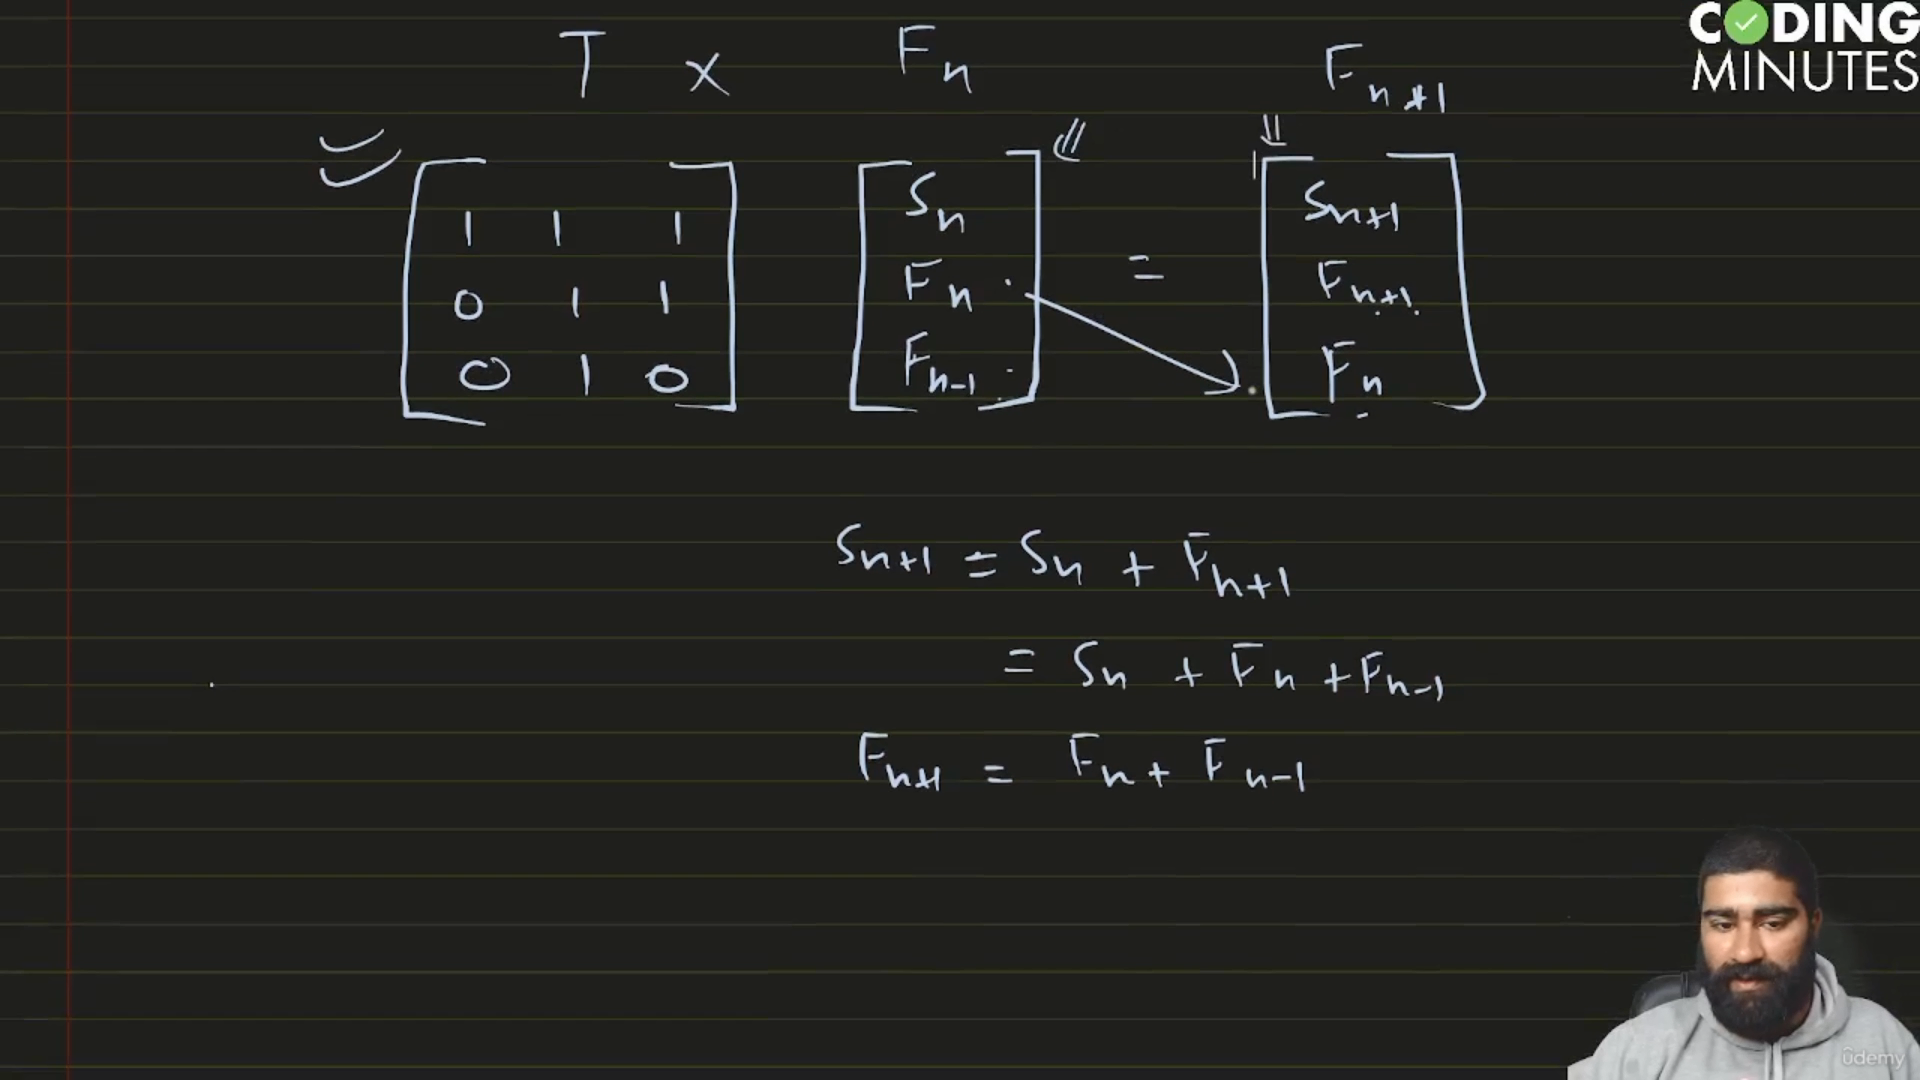 CODING
MINUTES
T × Fn Fn+1
1 1 1 Sn Sn+1
0 1 1 Fn = Fn+1
0 1 0 Fn-1 Fn
Sn+1 = Sn + Fn+1
= Sn + Fn + Fn-1
Fn+1 = Fn + Fn-1
ûdemy